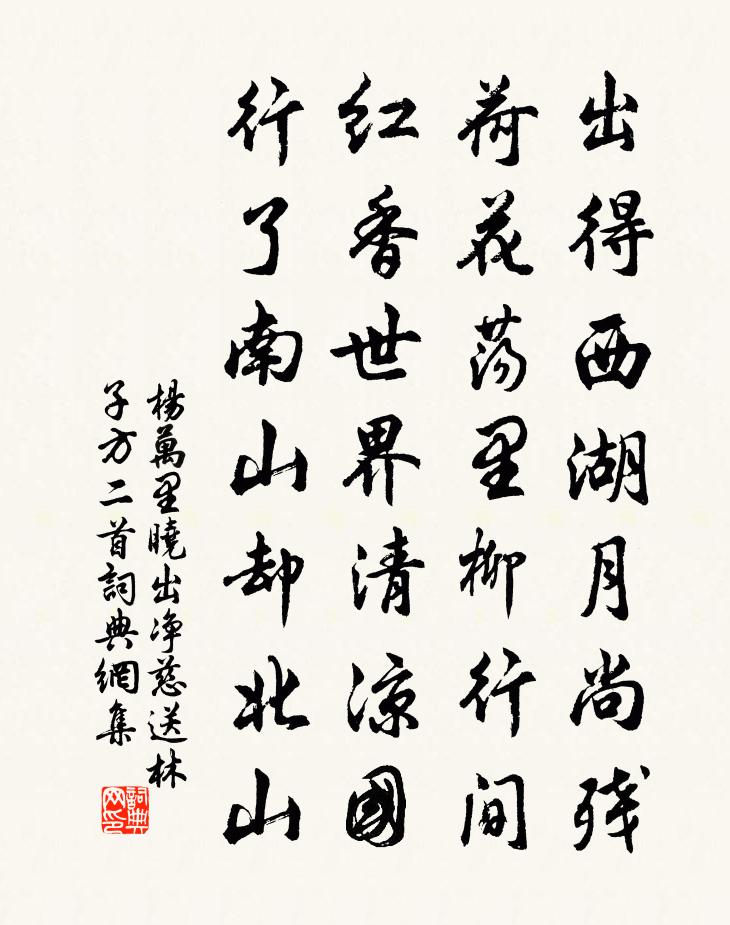 出得西湖月尚残
荷花荡里柳行间
红香世界清凉國
行了南山却北山
楊萬里曉出净慈送林
子方二首詞典網集
詞典网印